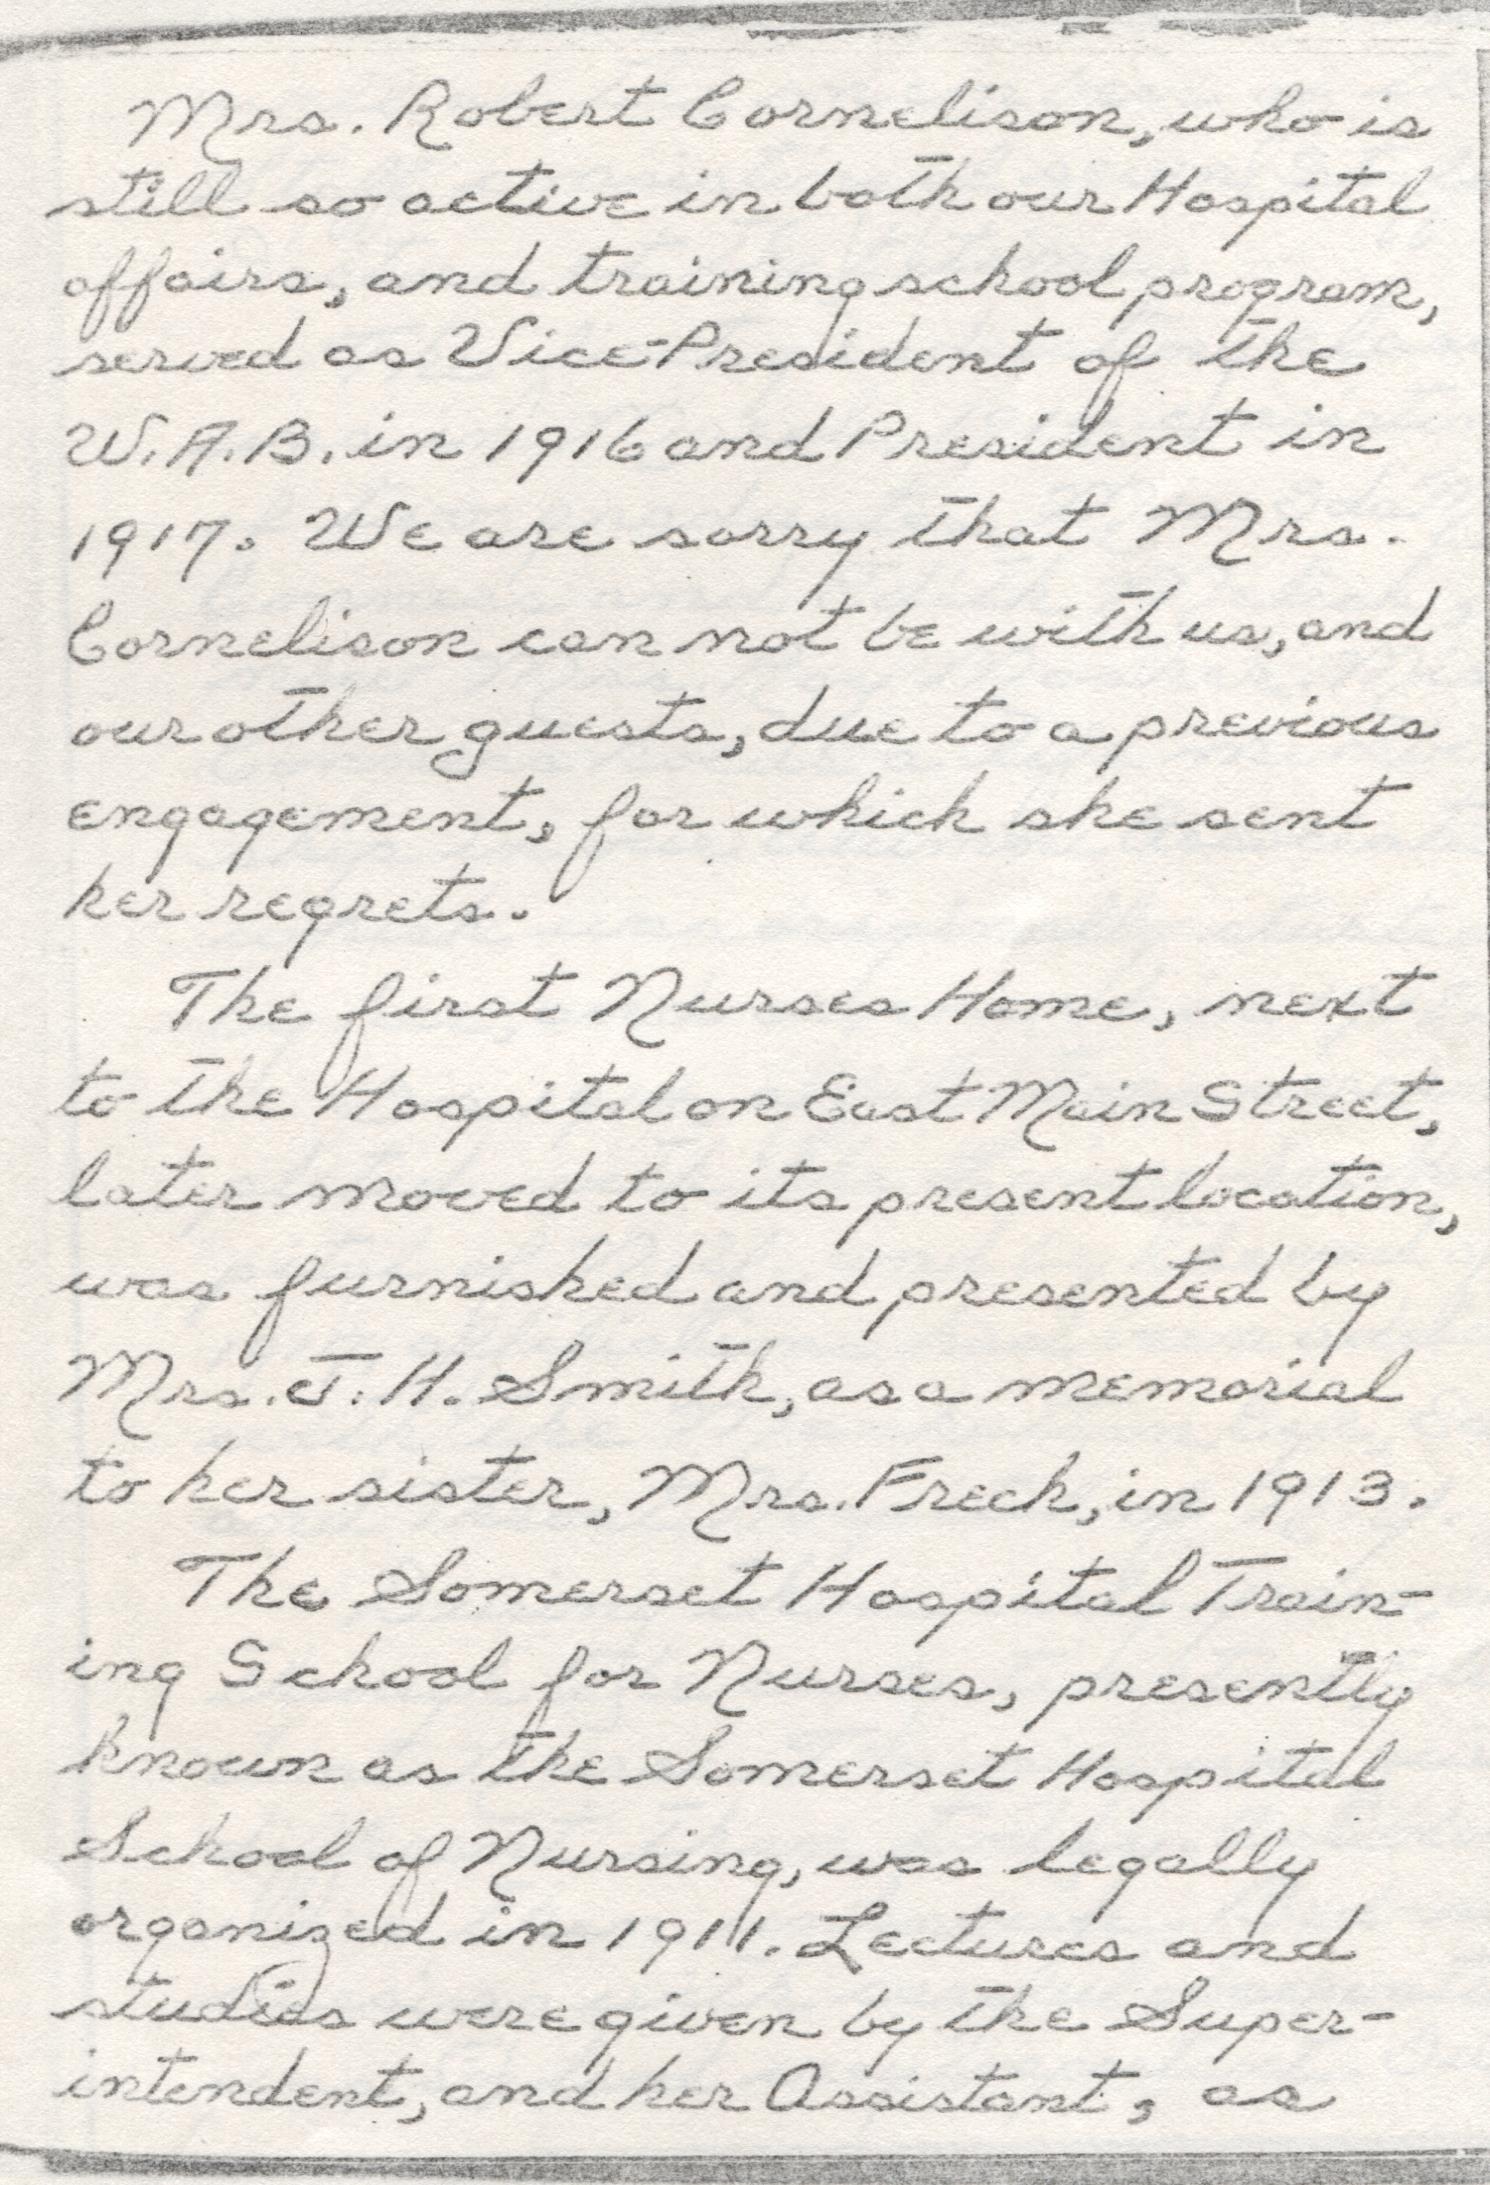 Mrs. Robert Cornelison, who is
still so active in both our Hospital
affairs, and training school program,
served as Vice-President of the
W.A.B. in 1916 and President in
1917. We are sorry that Mrs.
Cornelison can not be with us, and
our other guests, due to a previous
engagement, for which she sent
her regrets.
The first Nurses Home, next
to the Hospital on East Main Street,
later moved to its present location,
was furnished and presented by
Mrs. J. H. Smith, as a memorial
to her sister, Mrs. Frech, in 1913.
The Somerset Hospital Train-
ing School for Nurses, presently
known as the Somerset Hospital
School of Nursing, was legally
organized in 1911. Lectures and
studies were given by the Super-
intendent, and her Assistant, as